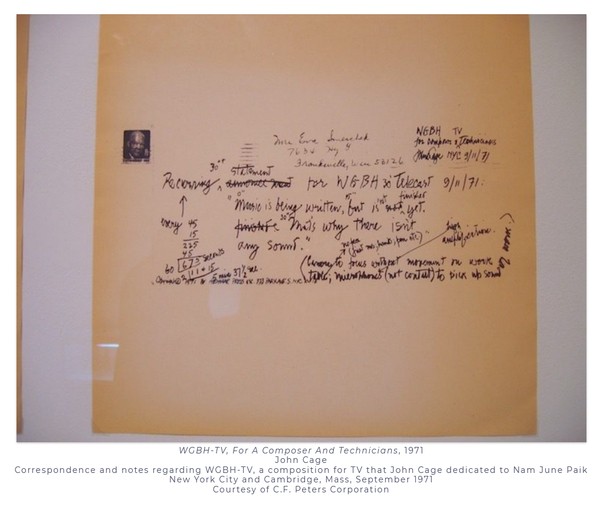 WGBH TV
for composer & technicians
NYC 9/11/71
Mrs Eva
Hwy 4
Franksville, Wisc 53126
30"
statement
Recurring for WGBH TV telecast 9/11/71:
finished
"Music is being written, but isn't yet.
That's why there isn't
any sound."
every 45
15
225
45
60 675 seconds
high
amplification.
(Camera to focus without movement on work
table; microphones (not contact) to pick up sound
WGBH-TV, For A Composer And Technicians, 1971
John Cage
Correspondence and notes regarding WGBH-TV, a composition for TV that John Cage dedicated to Nam June Paik
New York City and Cambridge, Mass, September 1971
Courtesy of C.F. Peters Corporation